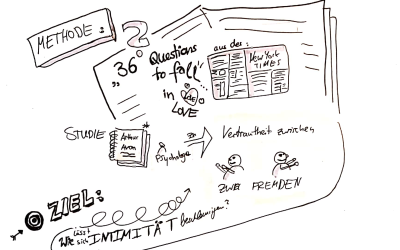 METHODE:
"36 Questions
to fall"
in
LOVE
aus der:
New York
TIMES
STUDIE
Arthur
Aron
Psychologe
Vertrautheit zwischen
ZWEI FREMDEN
ZIEL:
Wie lässt
sich INTIMITÄT beschleunigen?